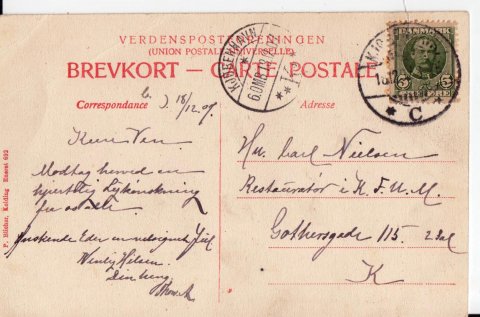 VERDENSPOSTFORENINGEN
(UNION POSTALE UNIVERSELLE)
BREVKORT — CARTE POSTALE.
Correspondance
Adresse
18/12.07.
Kære Ven.
Modtag herved en
hjertelig Lykønskning
fra os alle.
Ønskende Eder en velsignet Jul
Venlig Hilsen
Din heng.
Hr. Carl Nielsen
Restauratør i K. F. U. M.
Gothersgade 115. 2 Sal
K
P. Blicher, Kolding Eneret 692
KJØBENHAVN
6.OMB.
DANMARK
5
C